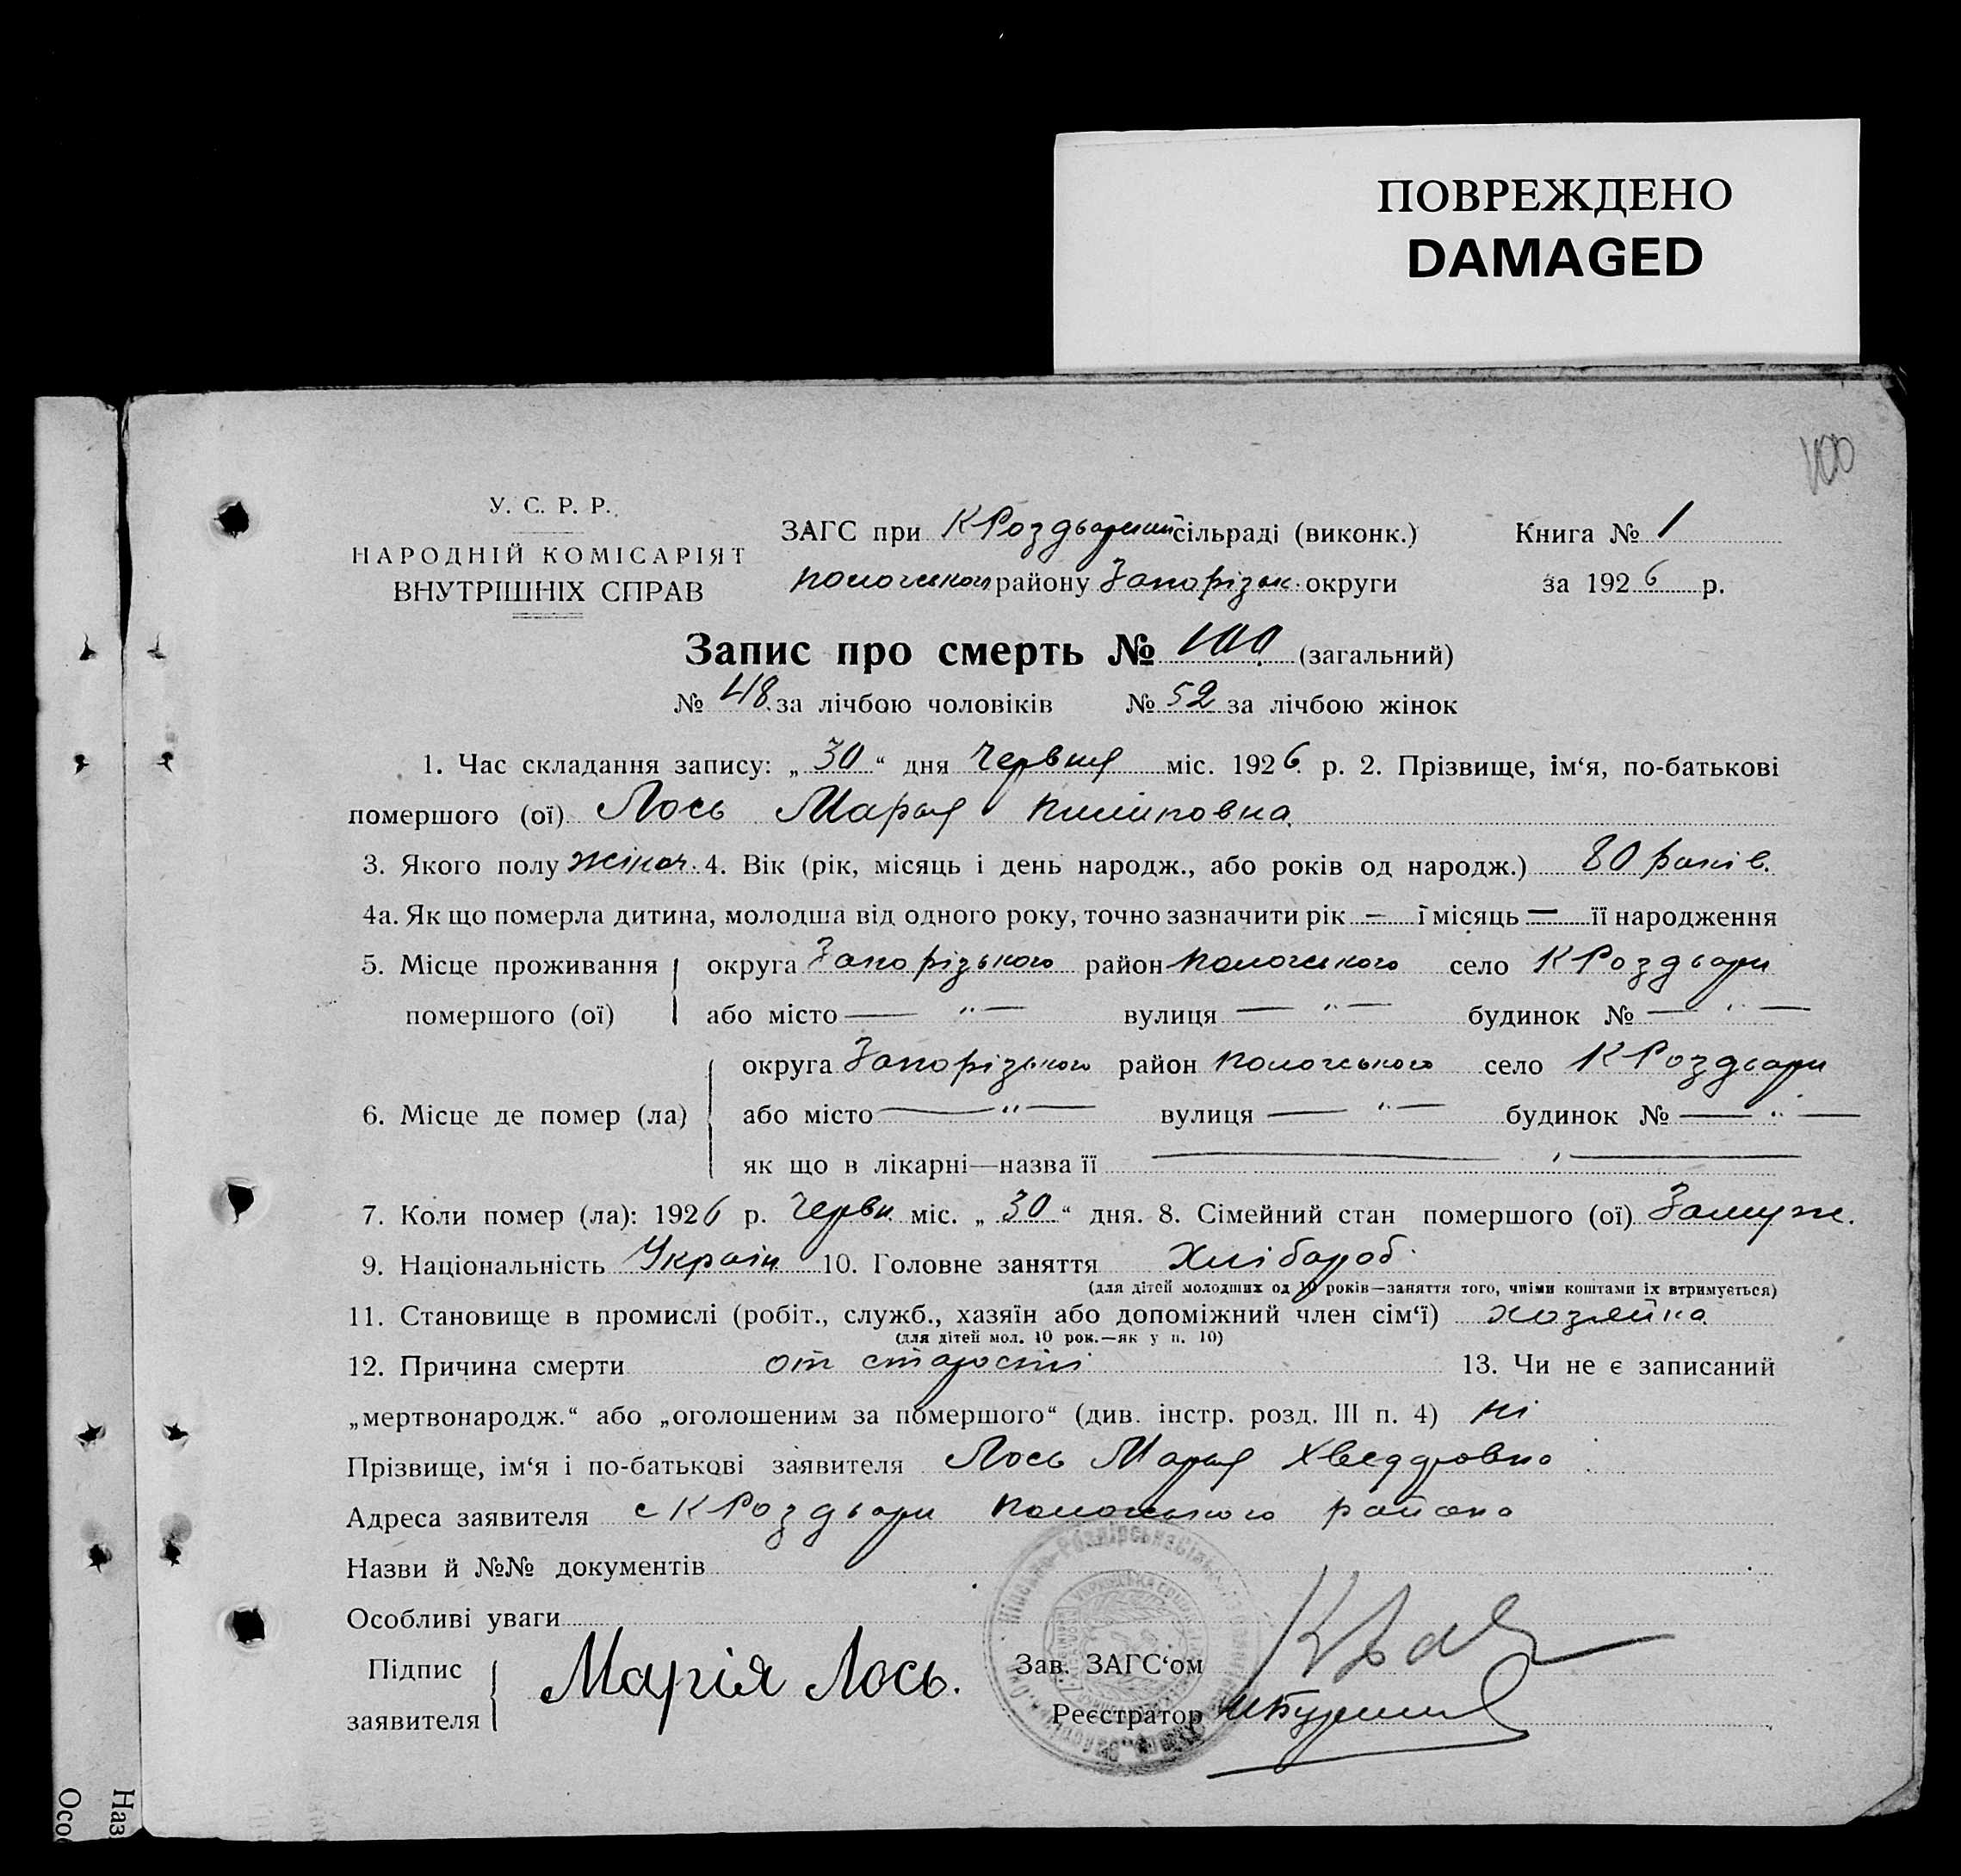 ПОВРЕЖДЕНО
DAMAGED
100
У. С. Р. Р.
НАРОДНІЙ КОМІСАРІЯТ
ВНУТРІШНІХ СПРАВ
ЗАГС при К Роздорський сільраді (виконк.)
Пологського району Запорізьк. округи
Книга № 1
за 1926 р.
Запис про смерть № 100 (загальний)
№ 48 за лічбою чоловіків № 52 за лічбою жінок
1. Час складання запису: „30“ дня Червня міс. 1926 р. 2. Прізвище, ім‘я, по-батькові
помершого (ої) Лось Марья Пилиповна
3. Якого полу жіноч. 4. Вік (рік, місяць і день народж., або років од народж.) 80 років.
4а. Як що померла дитина, молодша від одного року, точно зазначити рік — ї місяць — її народження
5. Місце проживання помершого (ої) округа Запорізького район Пологського село К Роздори
або місто — " — вулиця — " — будинок № — " —
6. Місце де помер (ла) округа Запорізького район Пологського село К Роздори
або місто — " — вулиця — " — будинок № — " —
як що в лікарні—назва її — " —
7. Коли помер (ла): 1926 р. Червн міс. „30“ дня. 8. Сімейний стан помершого (ої) Замуж.
9. Національність Україн 10. Головне заняття Хлібороб
(для дітей молодших од 10 років—заняття того, чиїми коштами їх втримується)
11. Становище в промислі (робіт., служб., хазяїн або допоміжний член сім‘ї) хозяйка
(для дітей мол. 10 рок.—як у п. 10)
12. Причина смерти от старости 13. Чи не є записаний
„мертвонародж.“ або „оголошеним за помершого“ (див. інстр. розд. III п. 4) ні
Прізвище, ім‘я і по-батькові заявителя Лось Марья Хведоровна
Адреса заявителя с К Роздори Пологського района
Назви й №№ документів
Особливі уваги
Підпис заявителя Марія Лось.
Зав. ЗАГС‘ом
Реєстратор
Наз
Осо